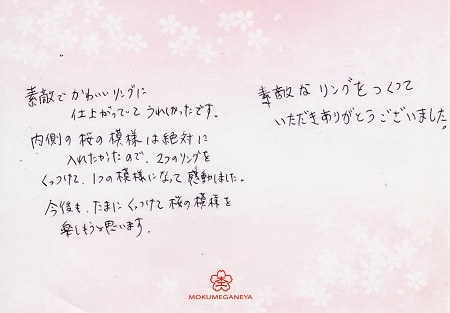 素敵でかわいいリングに
仕上がっててうれしかったです。
内側の桜の模様は絶対に
入れたかったので、2つのリングを
くっつけて、1つの模様になって感動しました。
今後も、たまにくっつけて桜の模様を
楽しもうと思います。
素敵なリングをつくって
いただきありがとうございました。
MOKUMEGANEYA